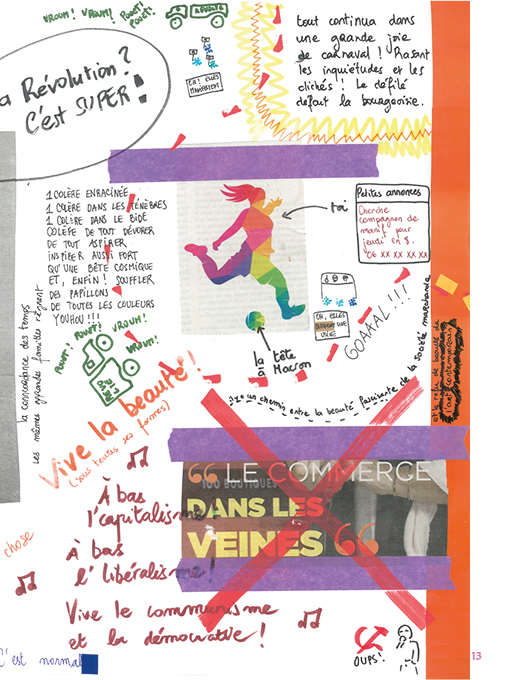 VROUM! VROUM!
POUET!
POUET!
a Révolution?
C'est SUPER!
tout continua dans
une grande joie
de carnaval! Rasant
les inquiétudes et les
clichés! Le défilé
défaut la bourgeoisie.
1 COLÈRE ENRACINÉE
1 COLÈRE DANS LES TÉNÈBRES
1 COLÈRE DANS LE BIDE
COLÈRE DE TOUT DÉVORER
DE TOUT ASPIRER
INSPIRER AUSSI FORT
QU'UNE BÊTE COSMIQUE
ET, ENFIN! SOUFFLER
DES PAPILLONS
DE TOUTES LES COULEURS
YOUHOU!!!
toi
Petites annonces
Cherche
compagnon de
manif pour
jeudi en 8.
06 XX XX XX XX
GOAAAL!!!
la tête
à Macron
POUET! POUET! VROUM!
VROUM!
la concordance des temps
Les mêmes grandes familles règnent
il y a un chemin entre la beauté fascinante de la société marchande
et celle de beauté de
l'art contemporain
Vive la beauté!
(sous toutes ses formes)
“ LE COMMERCE
100 BOUTIQUES
DANS LES
VEINES “
À bas
l'capitalisme!
à bas
l'libéralisme!
Vive le communisme
et la démocratie!
chose
C'est normal
OUPS!
13